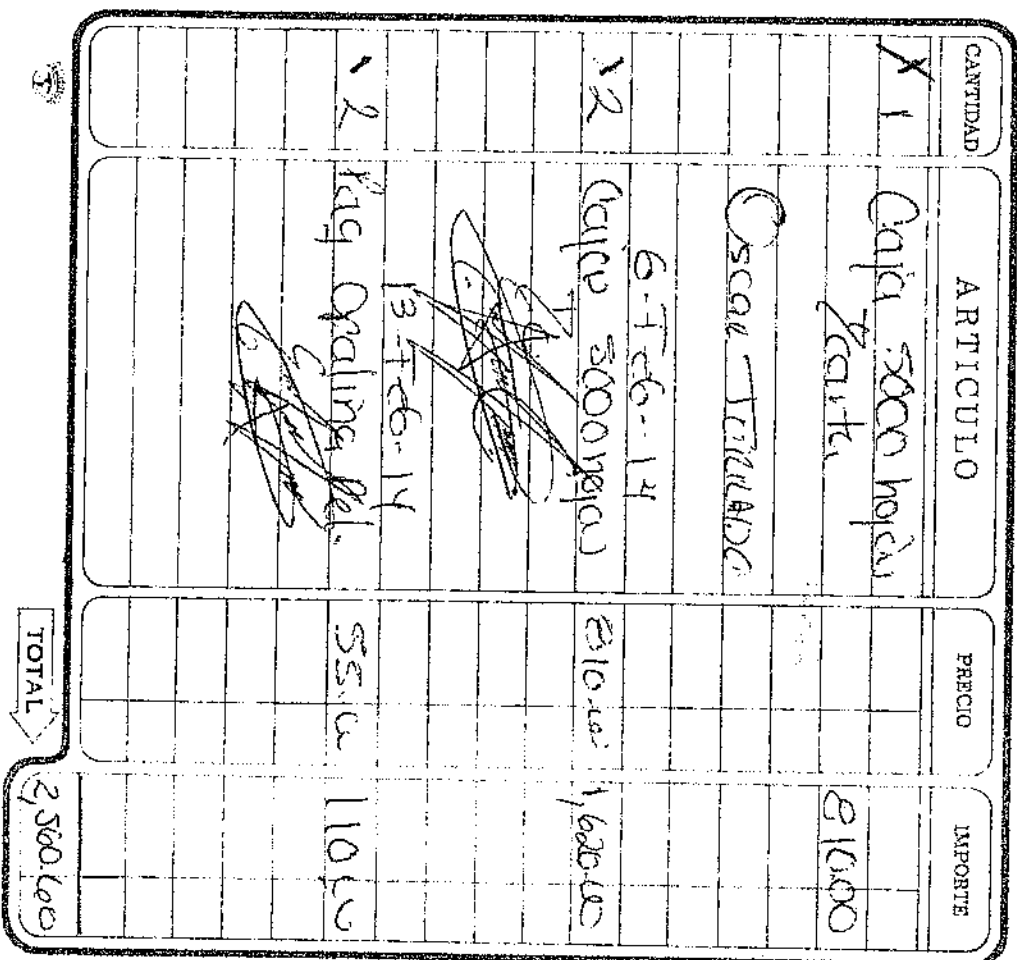 CANTIDAD ARTICULO PRECIO IMPORTE
X 1 Caja 5000 hojas
Carta 810.00
Oscar
6-Feb-14
2 Cajas 5000 hojas 810.00 1,620.00
13-Feb-14
2 Paq Opalina Del. 55.00 110.00
TOTAL 2,560.60